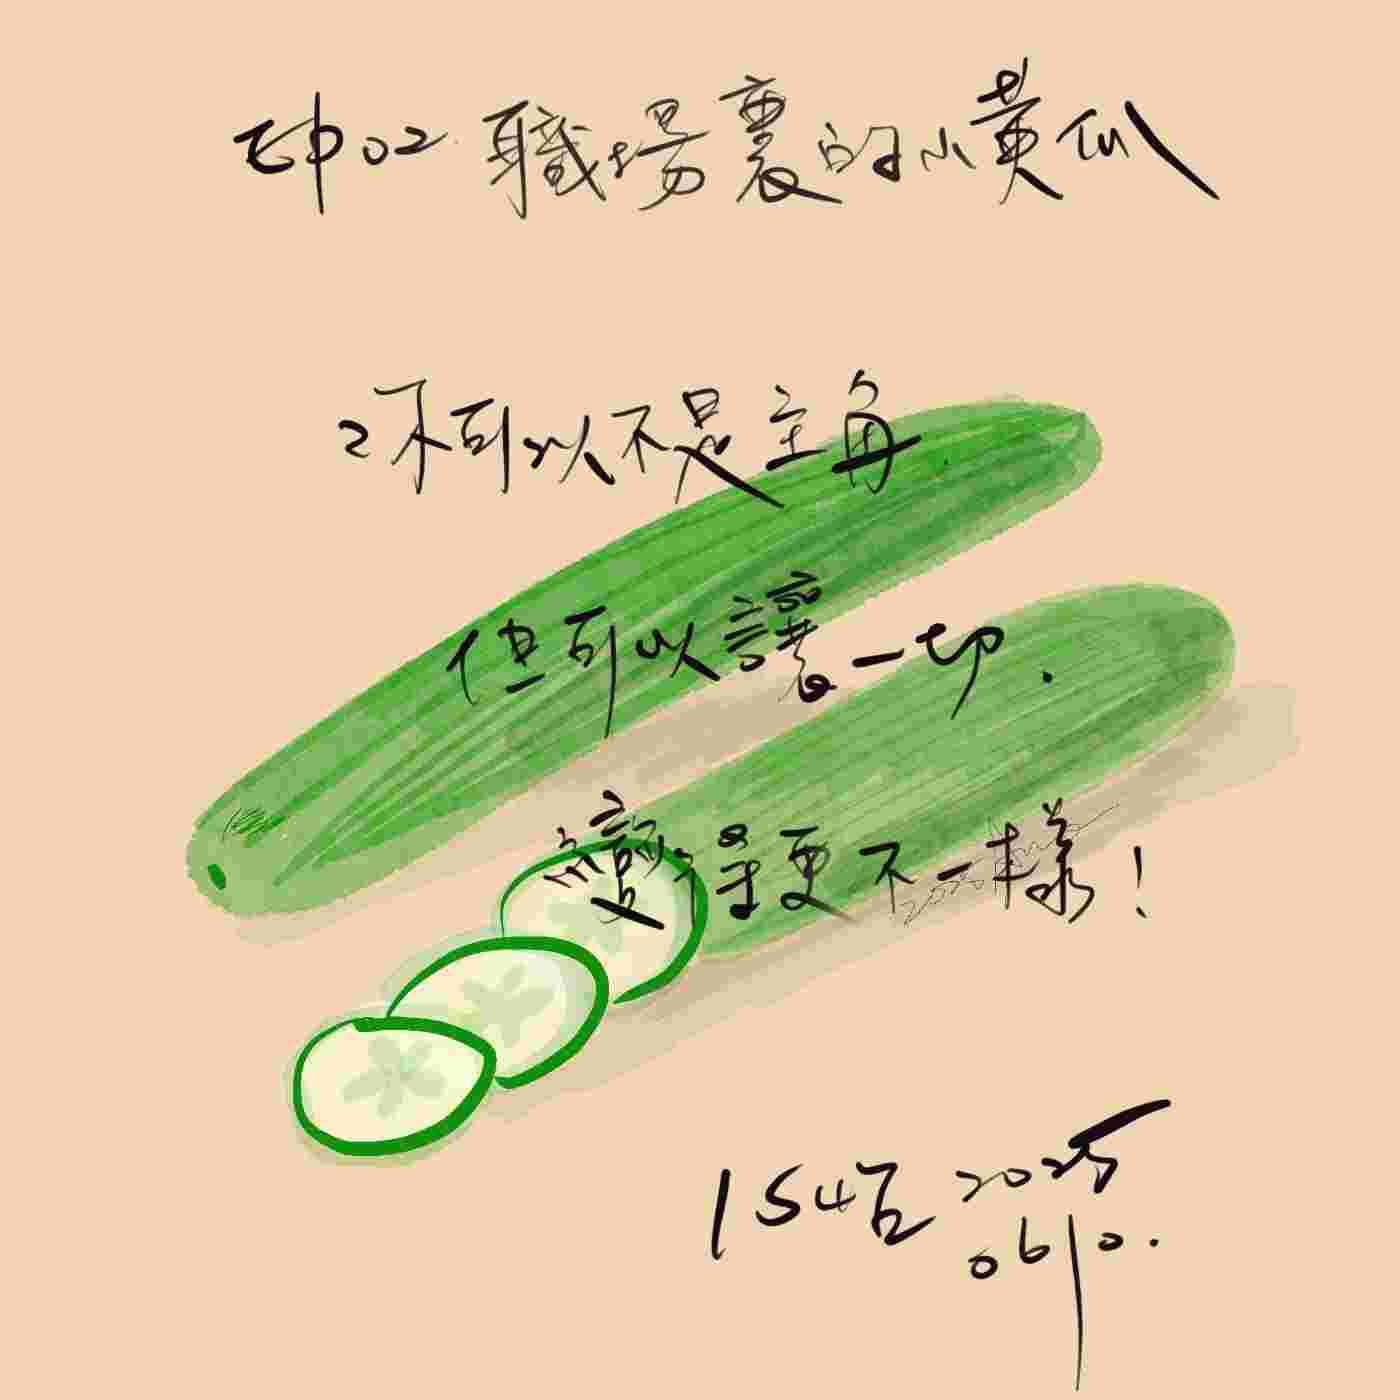 EP02 職場裏的小黃瓜
你可以不是主角
但可以讓一切.
變得更不一樣！
2025
0610.